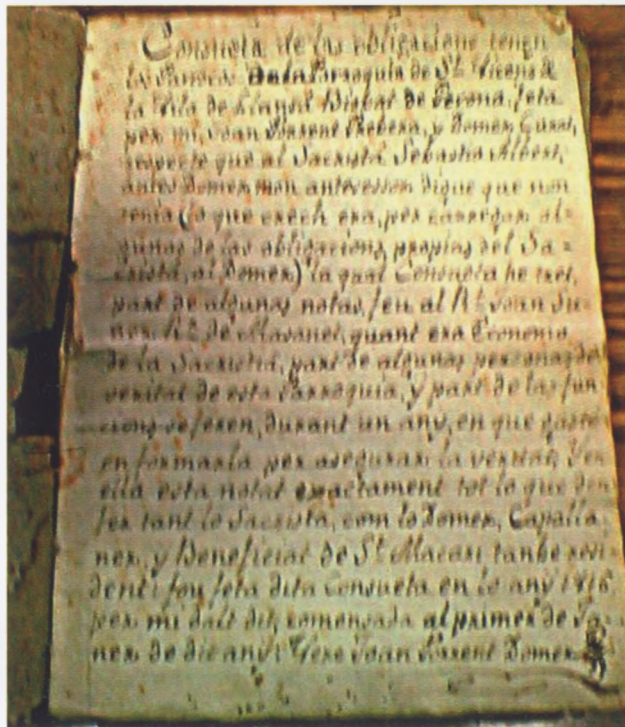 Consueta de las obligacions tenen
las Personas de la Parroquia de St. Vicens de
la Vila de Llansá Bisbat de Gerona, feta
per mi, Joan Torrent Prebere, y Domer Curat,
respecte que al Sacristá Sebastiá Albert,
antes Domer mon antecessor digue que non
tenia (lo que crech era, per carregar al=
gunas de las obligacions propias del Sa=
cristá, al Domer) la qual Consueta he tret,
part de algunas notas, feu al Rt. Joan Su
ner, Rr. de Masanet, quant era Economo
de la Sacristiá, part de algunas personas de
veritat de esta Parroquia, y part de las fun
cions se feren, durant un any, en que gastí
en formarla per asegurar la veritat, Y en
ella esta notat exactament tot lo que deu
fer tant lo Sacristá, com lo Domer, Capella
ner, y Beneficiat de St. Macari tanbe resi
dent: fou feta dita Consueta en lo any 1816
per mi dalt dit, comensada al primer de Ja=
ner de dit any: Joan Torrent Domer